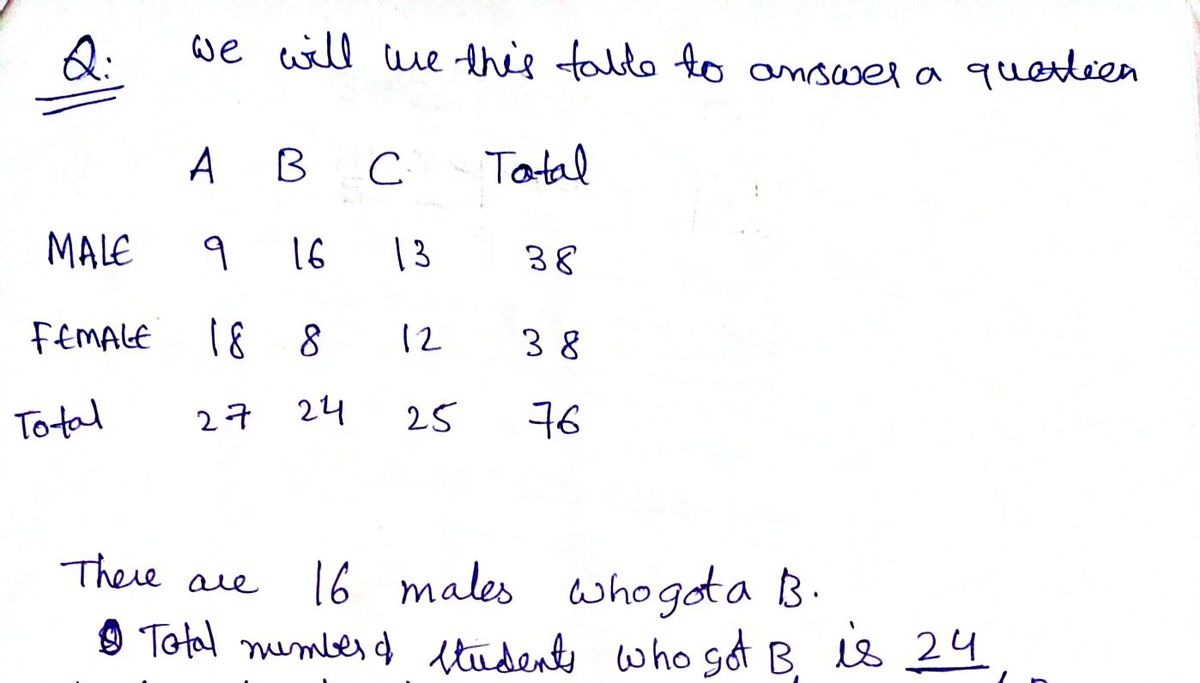 Q: We will use this table to answer a question
A B C Total
MALE 9 16 13 38
FEMALE 18 8 12 38
Total 27 24 25 76
There are 16 males who got a B.
Total number of students who got B is 24